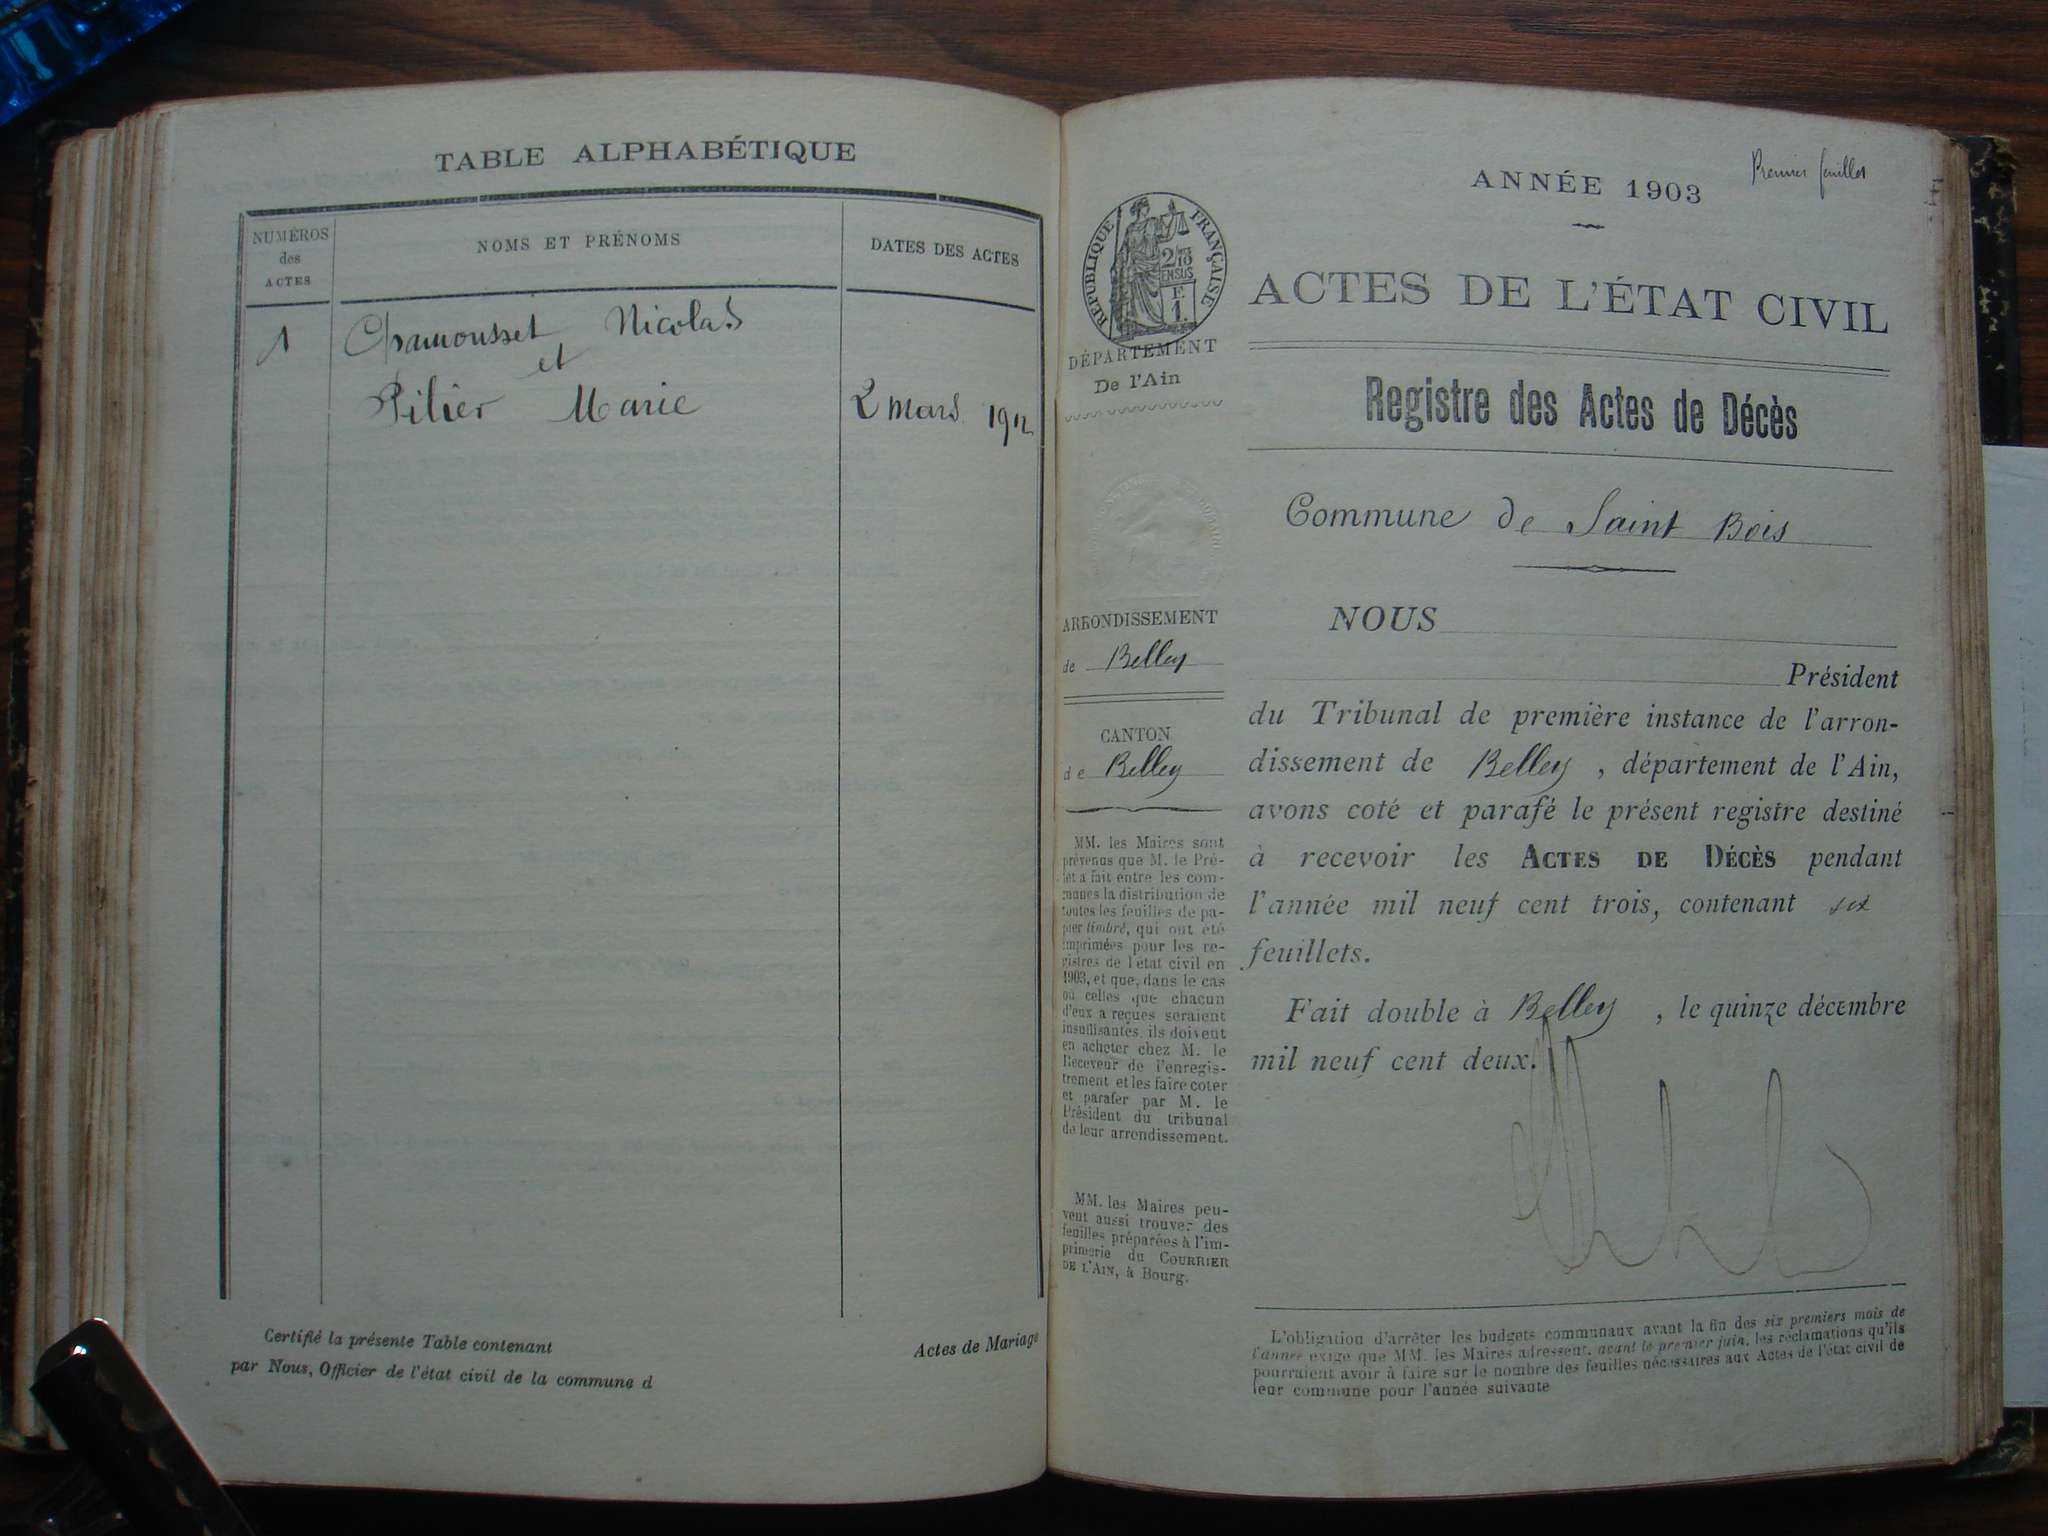 TABLE ALPHABÉTIQUE
NUMÉROS
des
ACTES
NOMS ET PRÉNOMS
DATES DES ACTES
1
Chamousset Nicolas
et
Pilier Marie
2 mars 1912
Certifié la présente Table contenant
Actes de Mariage
par Nous, Officier de l'état civil de la commune d
Premier feuillet
ANNÉE 1903
RÉPUBLIQUE FRANÇAISE
2/10
EN SUS
F.
1.
ACTES DE L'ÉTAT CIVIL
DÉPARTEMENT
De l'Ain
Registre des Actes de Décès
Commune de Saint Bois
ARRONDISSEMENT
de Belley
CANTON
de Belley
MM. les Maires sont
prévenus que M. le Pré-
fet a fait entre les com-
munes la distribution de
toutes les feuilles de pa-
pier timbré, qui ont été
imprimées pour les re-
gistres de l'état civil en
1903, et que, dans le cas
où celles que chacun
d'eux a reçues seraient
insuffisantes, ils doivent
en acheter chez M. le
Receveur de l'enregis-
trement et les faire coter
et parafer par M. le
Président du tribunal
de leur arrondissement.
MM. les Maires peu-
vent aussi trouver des
feuilles préparées à l'im-
primerie du COURRIER
DE L'AIN, à Bourg.
NOUS
Président
du Tribunal de première instance de l'arron-
dissement de Belley, département de l'Ain,
avons coté et parafé le présent registre destiné
à recevoir les ACTES DE DÉCÈS pendant
l'année mil neuf cent trois, contenant six
feuillets.
Fait double à Belley, le quinze décembre
mil neuf cent deux.
L'obligation d'arrêter les budgets communaux avant la fin des six premiers mois de
l'année exige que MM. les Maires adressent, avant le premier juin, les réclamations qu'ils
pourraient avoir à faire sur le nombre des feuilles nécessaires aux Actes de l'état civil de
leur commune pour l'année suivante